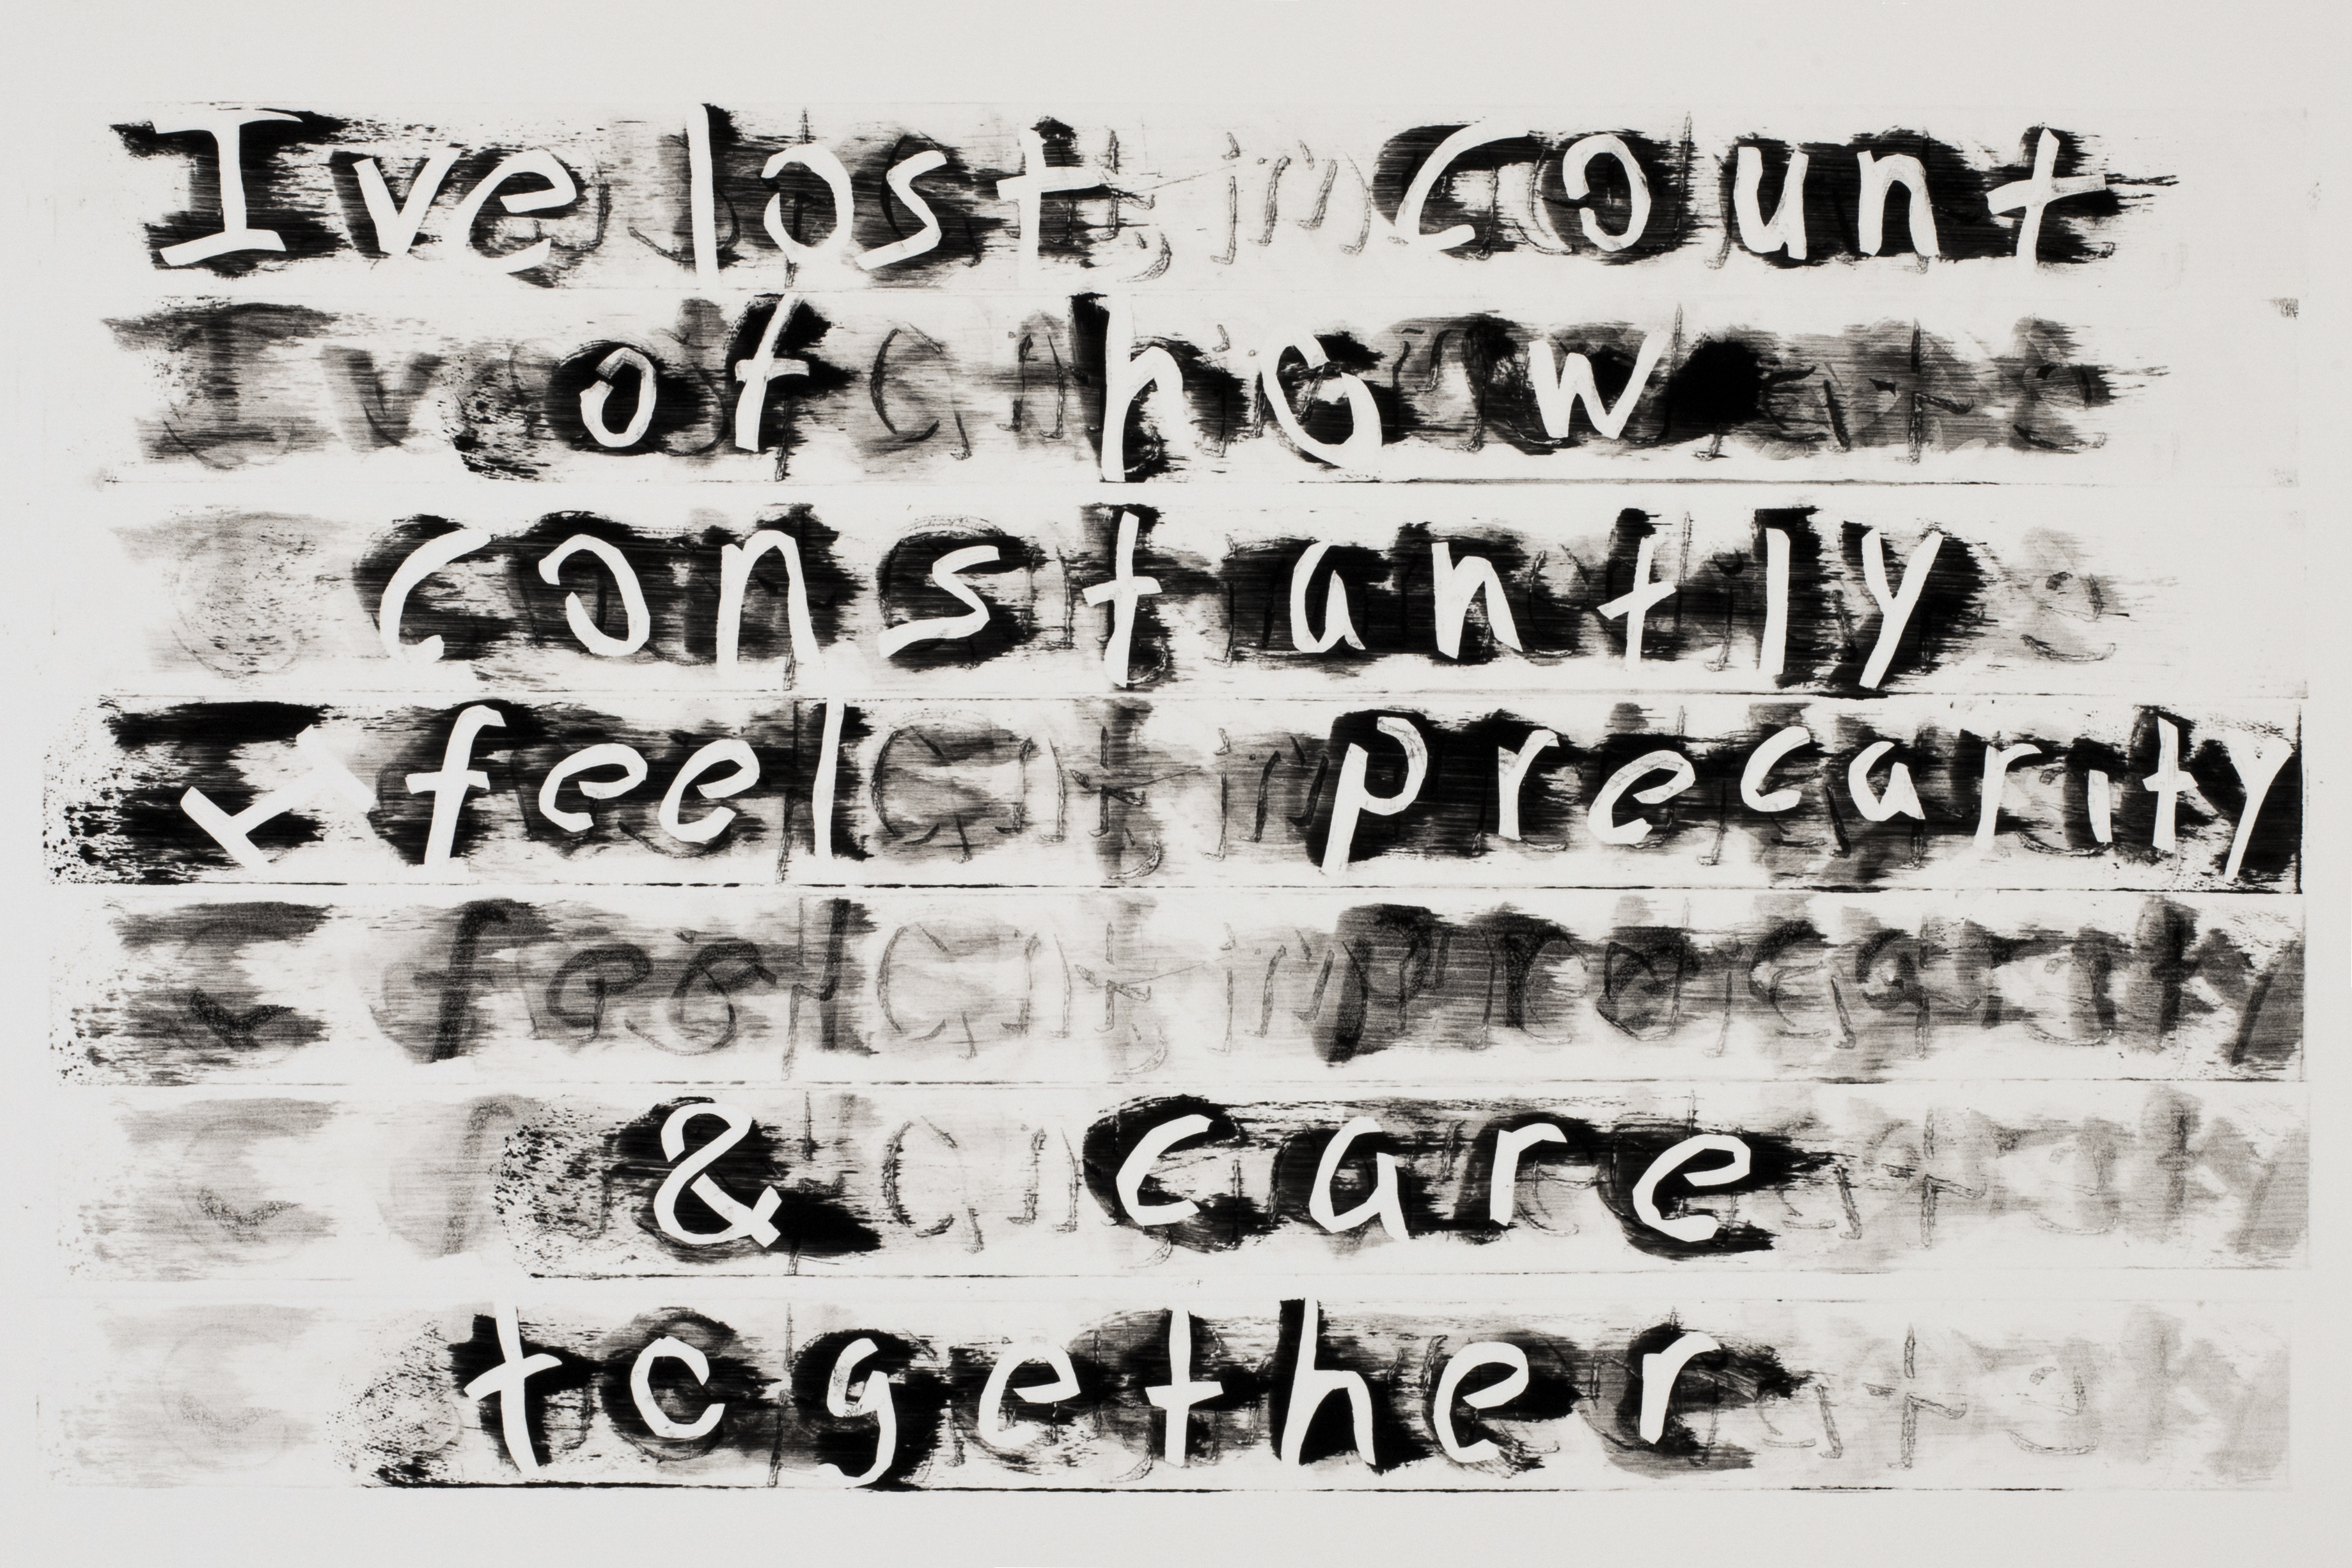 Ive lost count
of how
constantly
I feel precarity
feel precarity
& care
together